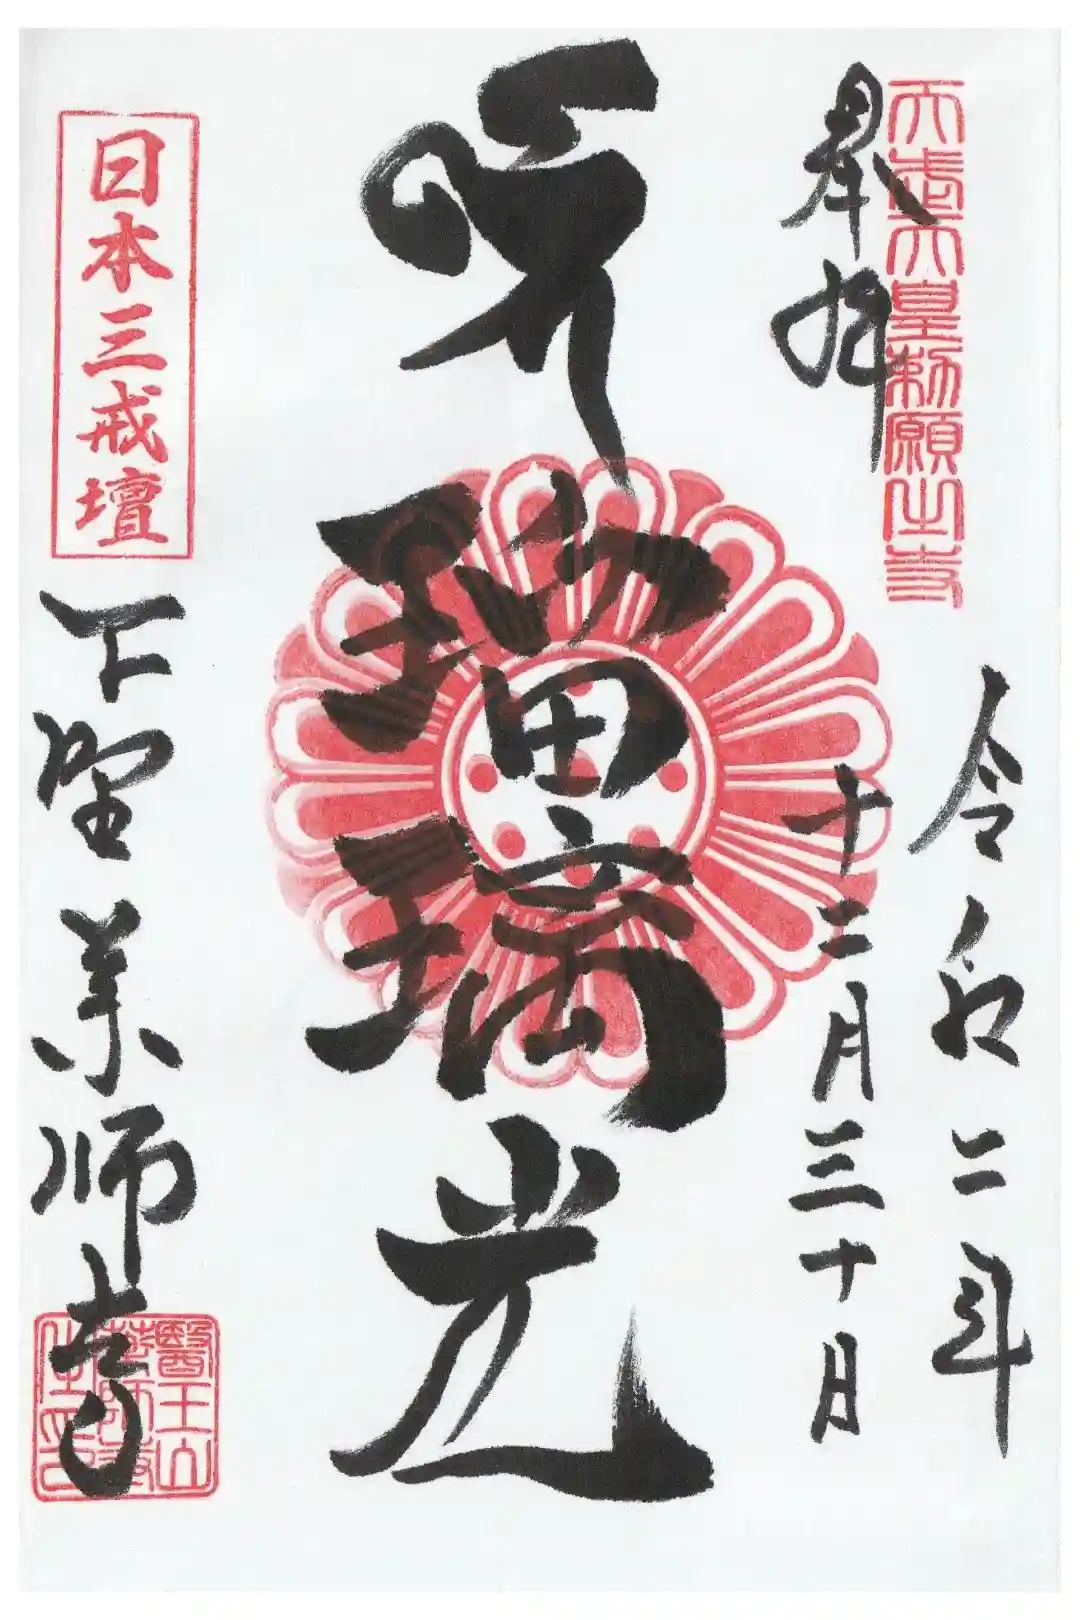 天武天皇勅願之寺
奉拝
令和二年
十二月三十日
瑠璃光
日本三戒壇
下野薬師寺
醫王山薬師寺之印